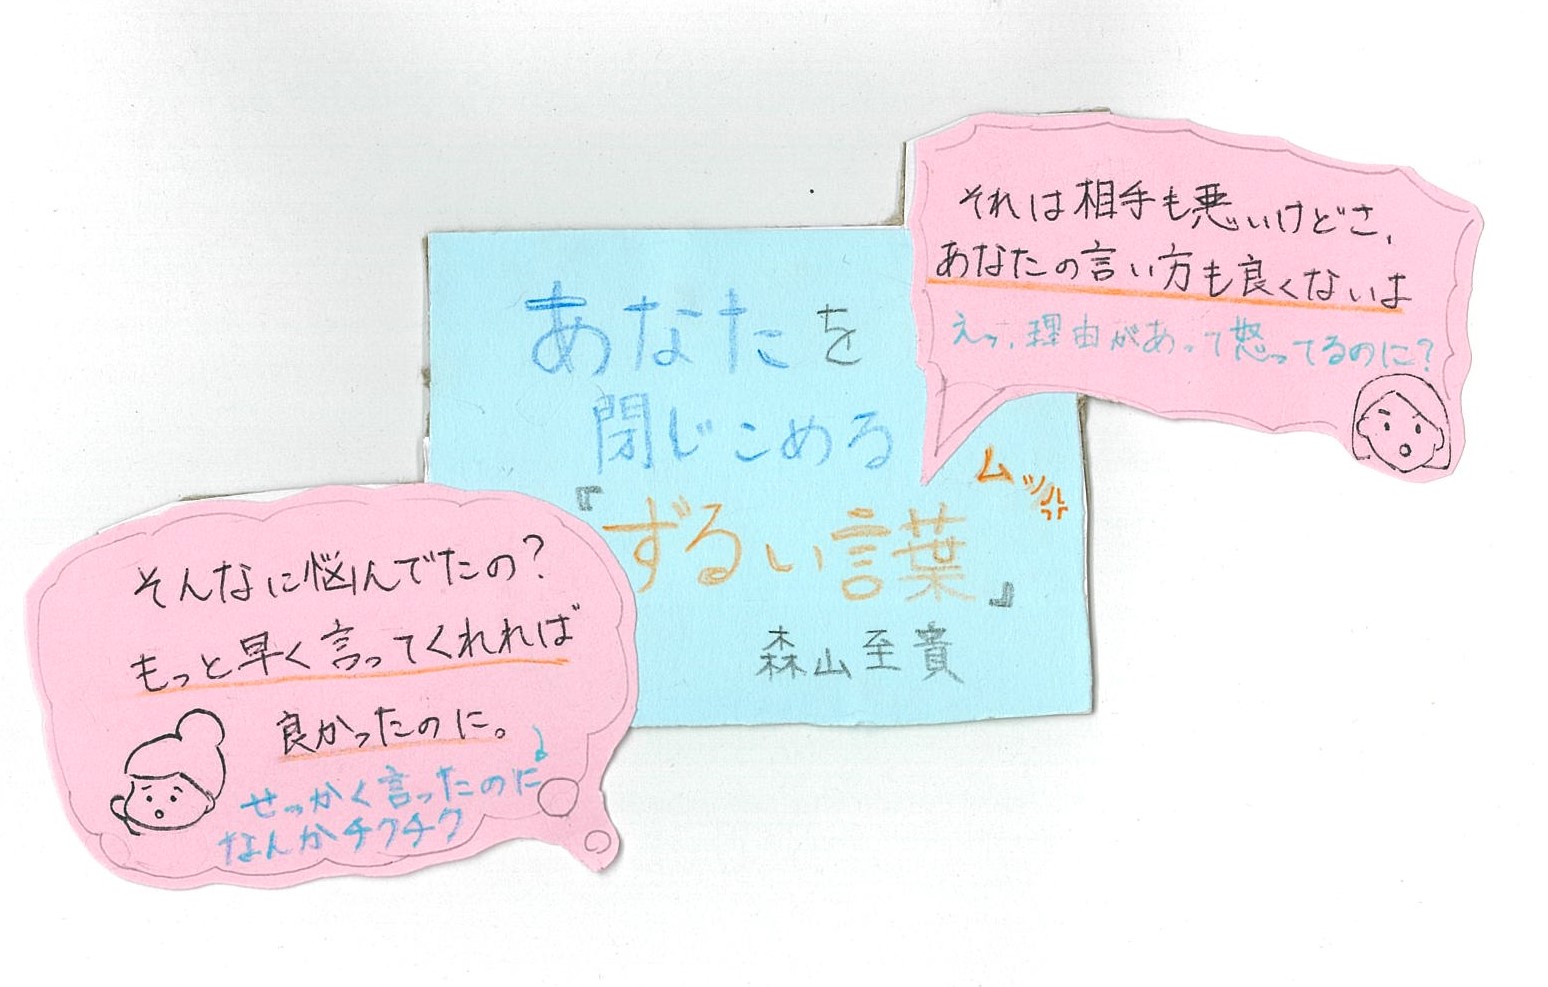 それは相手も悪いけどさ、
あなたの言い方も良くないよ
えっ、理由があって怒ってるのに?
あなたを
閉じこめる
『ずるい言葉』
ムッ
森山至貴
そんなに悩んでたの?
もっと早く言ってくれれば
良かったのに。
せっかく言ったのに
なんかチクチク